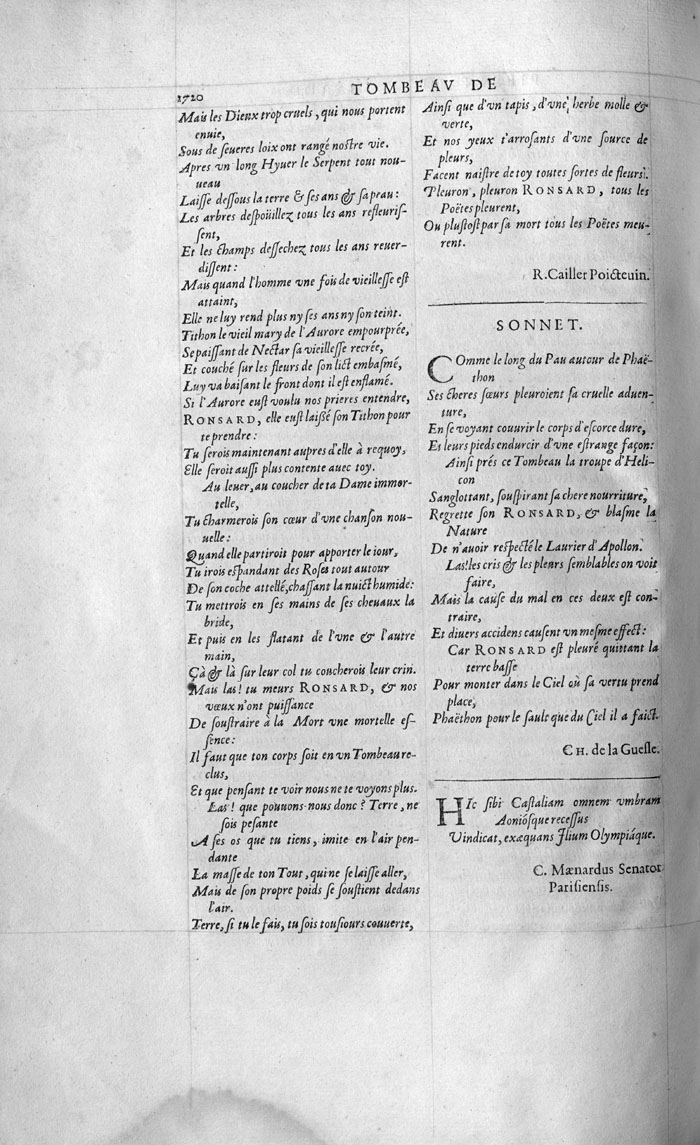 1720
TOMBEAV DE
Mais les Dieux trop cruels, qui nous portent
enuie,
Sous de seueres loix ont rangé nostre vie.
Apres vn long Hyuer le Serpent tout nou-
ueau
Laisse dessous la terre & ses ans & sa peau:
Les arbres despoüillez tous les ans refleuris-
sent,
Et les champs dessechez tous les ans reuer-
dissent:
Mais quand l'homme vne fois de vieillesse est
attaint,
Elle ne luy rend plus ny ses ans ny son teint.
Tithon le vieil mary de l'Aurore empourprée,
Se paissant de Nectar sa vieillesse recrée,
Et couché sur les fleurs de son lict embasmé,
Luy va baisant le front dont il est enflamé.
Si l'Aurore eust voulu nos prieres entendre,
RONSARD, elle eust laissé son Tithon pour
te prendre:
Tu serois maintenant aupres d'elle à requoy,
Elle seroit aussi plus contente auec toy.
Au leuer, au coucher de ta Dame immor-
telle,
Tu charmerois son cœur d'vne chanson nou-
uelle:
Quand elle partiroit pour apporter le iour,
Tu irois espandant des Roses tout autour
De son coche attellé, chassant la nuict humide:
Tu mettrois en ses mains de ses cheuaux la
bride,
Et puis en les flatant de l'vne & l'autre
main,
Çà & là sur leur col tu coucherois leur crin.
Mais las! tu meurs RONSARD, & nos
vœux n'ont puissance
De soustraire à la Mort vne mortelle es-
sence:
Il faut que ton corps soit en vn Tombeau re-
clus,
Et que pensant te voir nous ne te voyons plus.
Las! que pouuons-nous donc? Terre, ne
sois pesante
A ses os que tu tiens, imite en l'air pen-
dante
La masse de ton Tout, qui ne se laisse aller,
Mais de son propre poids se soustient dedans
l'air.
Terre, si tu le fais, tu sois tousiours couuerte,
Ainsi que d'vn tapis, d'vne herbe molle &
verte,
Et nos yeux t'arrosants d'vne source de
pleurs,
Facent naistre de toy toutes sortes de fleurs.
Pleuron, pleuron RONSARD, tous les
Poëtes pleurent,
Ou plustost par sa mort tous les Poëtes meu-
rent.
R. Cailler Poicteuin.
SONNET.
COmme le long du Pau autour de Phaë-
thon
Ses cheres sœurs pleuroient sa cruelle aduen-
ture,
En se voyant couurir le corps d'escorce dure,
Et leurs pieds endurcir d'vne estrange façon:
Ainsi prés ce Tombeau la troupe d'Heli-
con
Sanglottant, souspirant sa chere nourriture,
Regrette son RONSARD, & blasme la
Nature
De n'auoir respecté le Laurier d'Apollon.
Las! les cris & les pleurs semblables on voit
faire,
Mais la cause du mal en ces deux est con-
traire,
Et diuers accidens causent vn mesme effect:
Car RONSARD est pleuré quittant la
terre basse
Pour monter dans le Ciel où sa vertu prend
place,
Phaëthon pour le saule que du Ciel il a faict.
CH. de la Guesle.
HIc sibi Castaliam omnem vmbram
Aoniósque recessus
Vindicat, exæquans Ilium Olympiáque.
C. Mænardus Senator
Parisiensis.